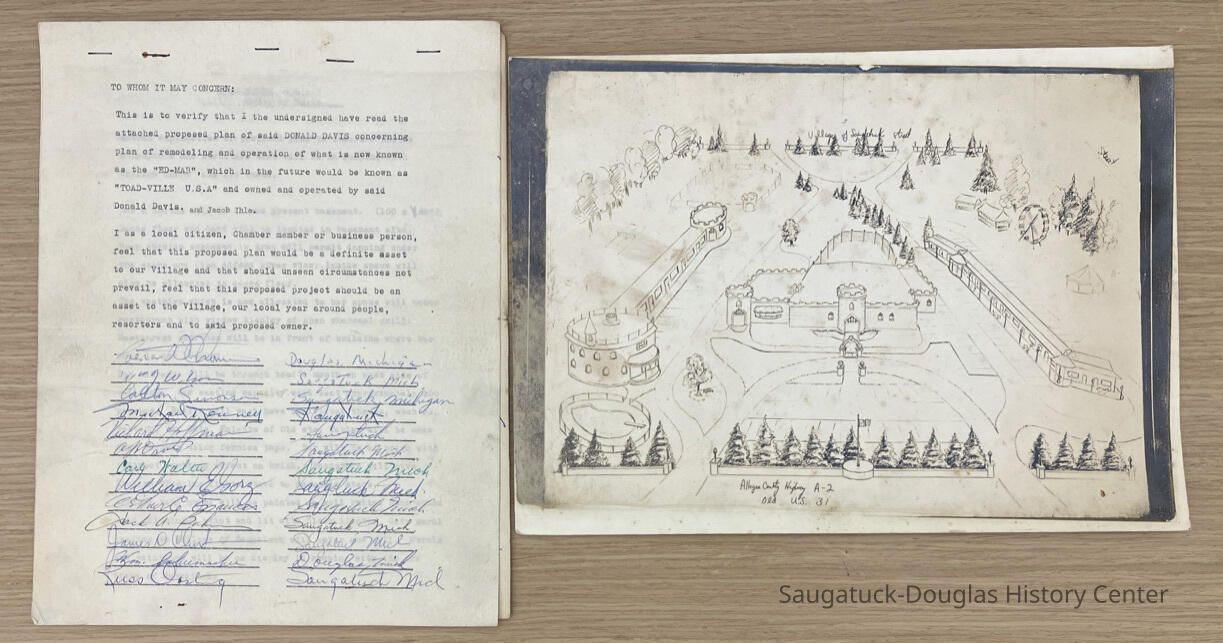 TO WHOM IT MAY CONCERN:
This is to verify that I the undersigned have read the
attached proposed plan of said DONALD DAVIS concerning
plan of remodeling and operation of what is now known
as the "ED-MAR", which in the future would be known as
"TOAD-VILLE U.S.A" and owned and operated by said
Donald Davis. and Jacob Ihle.
I as a local citizen, Chamber member or business person,
feel that this proposed plan would be a definite asset
to our Village and that should unseen circumstances not
prevail, feel that this proposed project should be an
asset to the Village, our local year around people,
resorters and to said proposed owner.
Douglas, Michigan
Saugatuck Mich
Carlton Simons Saugatuck Michigan
Michael Kenney Saugatuck
Richard Saugatuck
Saugatuck Mich
Carl Walter Saugatuck Mich
William Saugatuck Mich.
Saugatuck Mich
Jack Saugatuck Mich
James
Wm. Schumacher Douglas, Mich
Russ Saugatuck Mich
Village of Saugatuck Street
Allegan County Highway A-2
Old U.S. 31
Saugatuck-Douglas History Center